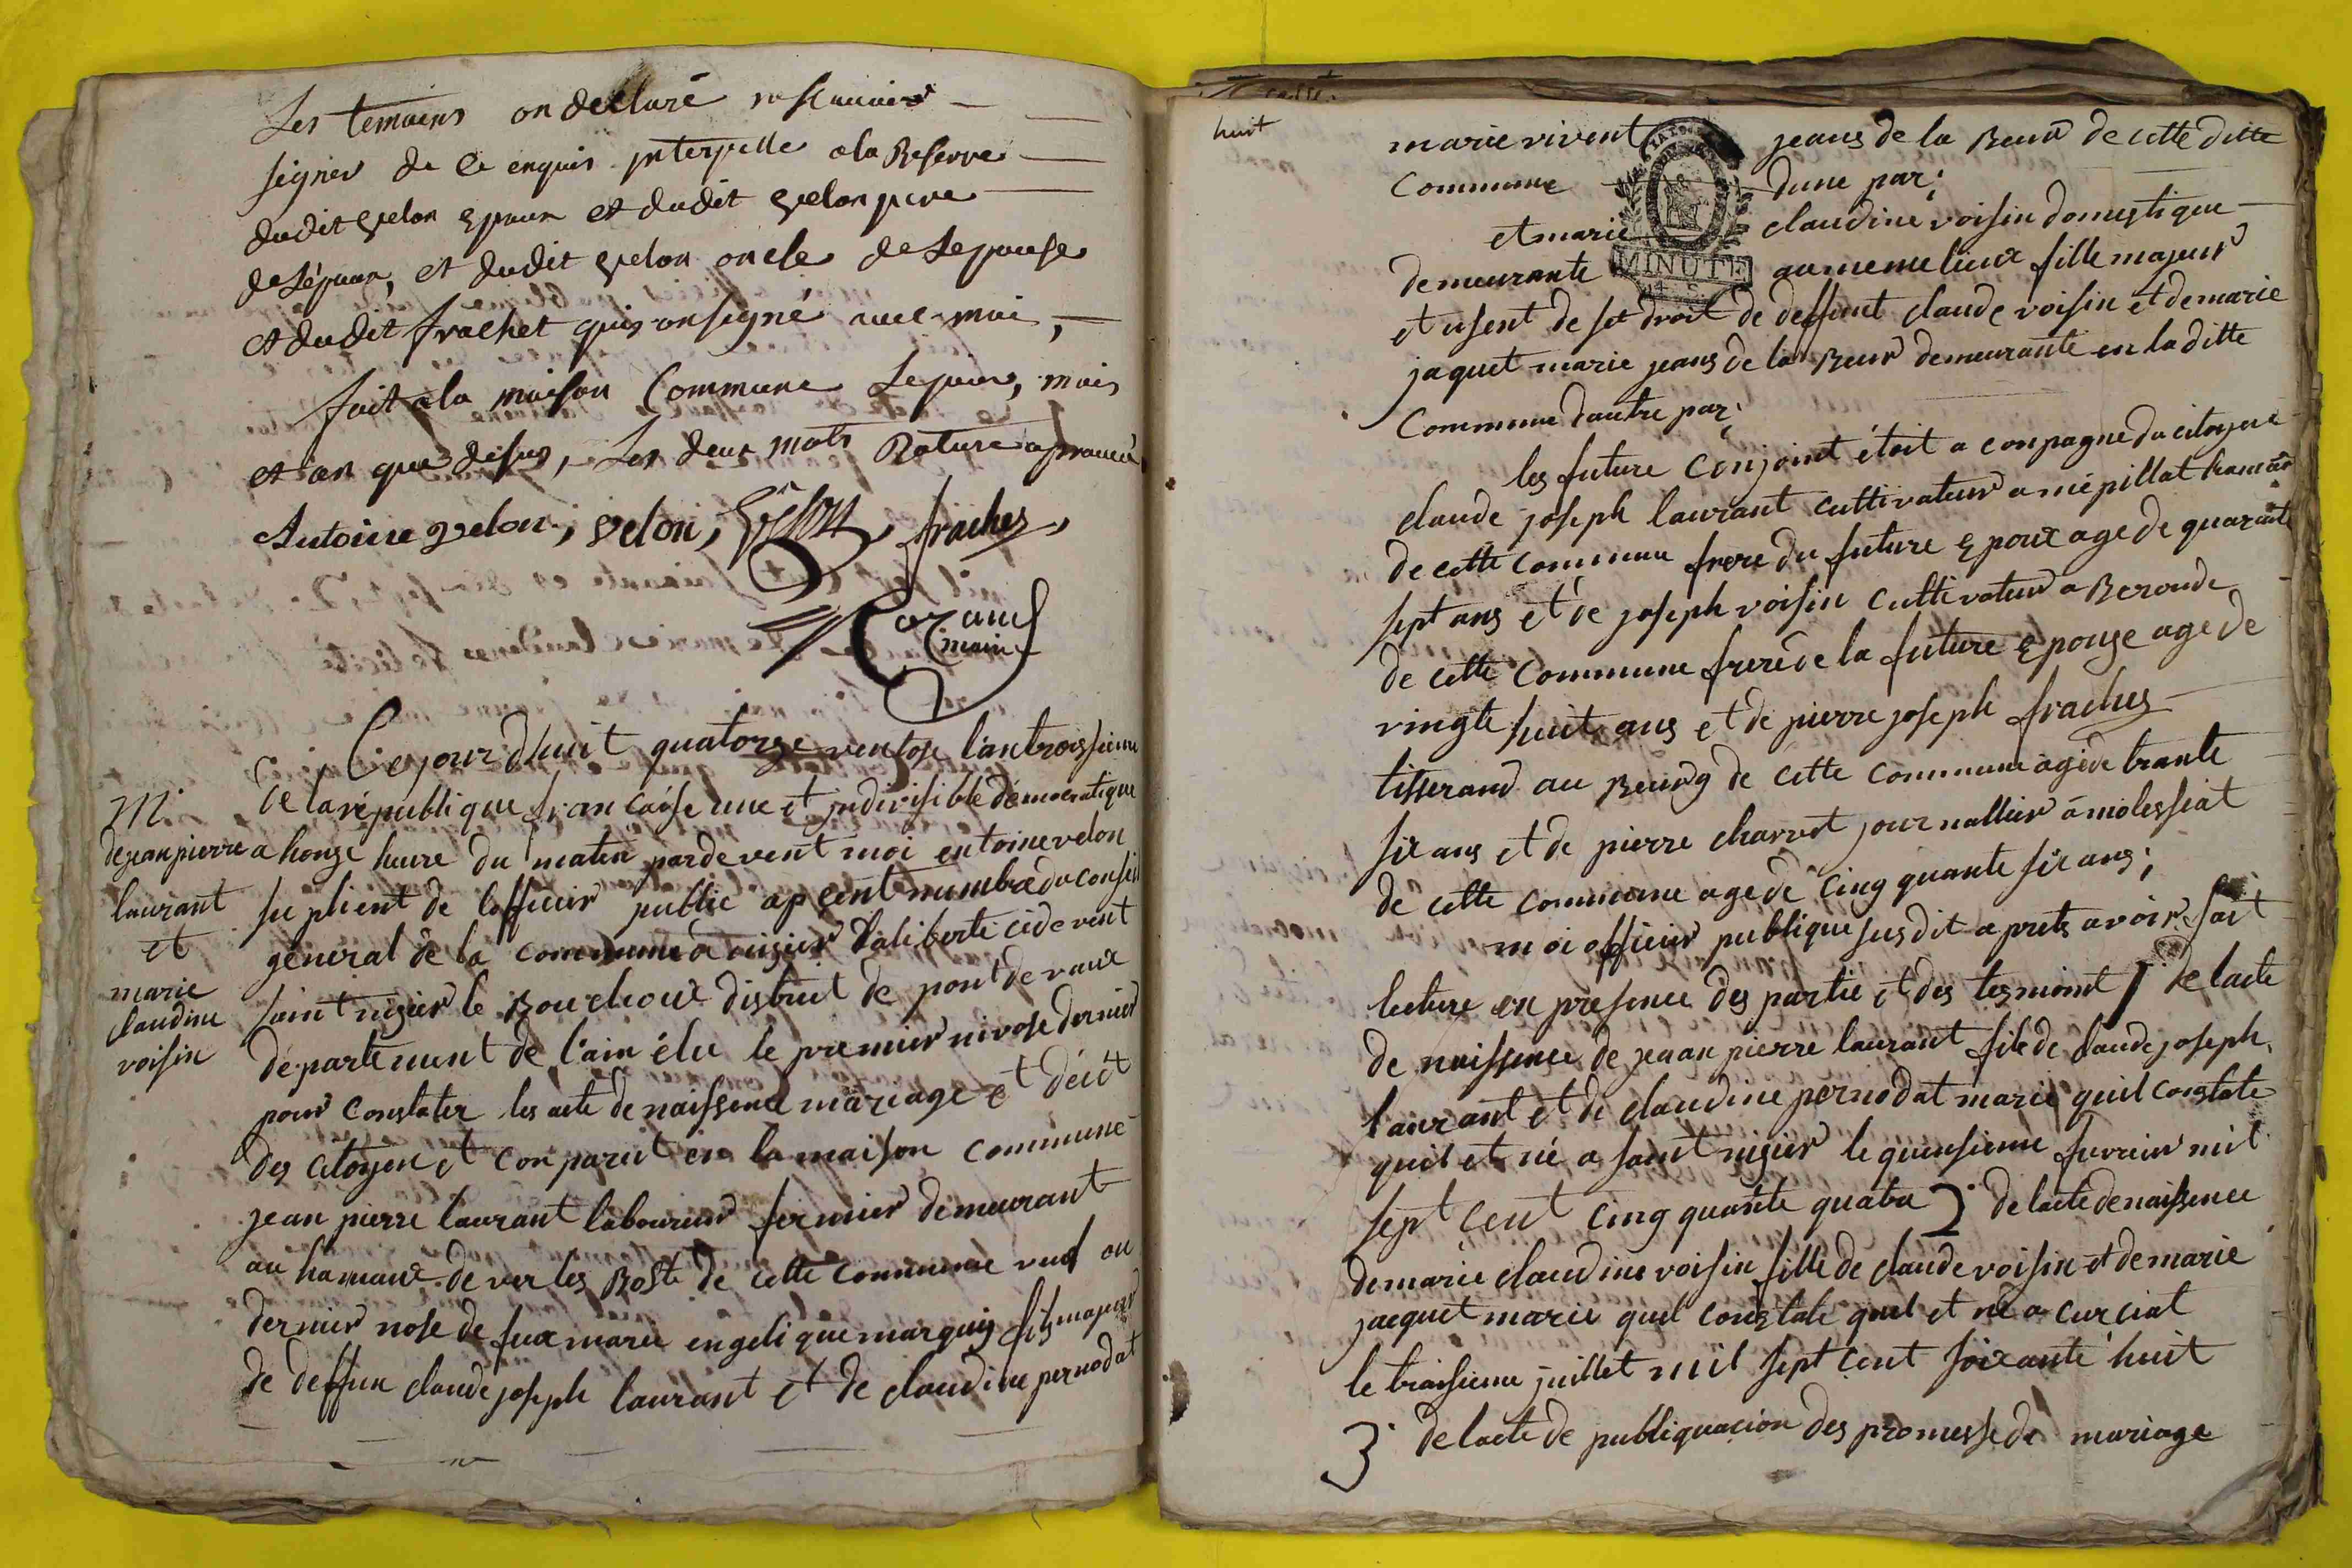 Les temoiens on declaré ne scavoier
signer de ce enquis interpelle a la Reserve
dudit velon Epoux et dudit velon pere
de Lépoux, et dudit velon oncle de Lepouse
et dudit frachet quis on signé avec moi,
fait a la maison Commune Lejour, mois
et an que desus, Les deux mots Rature aprouvé
Antoine velon, velon, velon, frachet,
maire
Ce jour dhuit quatorze ventose l'an troisieme
de la république francaise une et indivisible démocratique
a honze heure du matin pardevent moi entoine velon
supleent de lofficier public ap cent membre du conseil
géneral de la commune de nizier Laliberte cidevent
saint nizier le Bouchoux distrit de pont de vaux
département de l'ain élu le premier nivose dernier
pour constater les acte de naissence mariage et décét
des citoyen et conparut en la maison commune
jean pierre laurant laboureur fermier demeurant
au hamaux de ver les Bost de cette commune veuf en
dernier nose de feux marie engelique marquis fils majeur
de deffun claude joseph laurant et de claudine pernodat
M.
de jean pierre
laurant
et
marie
claudine
voisin
huit
marie vivent jeans de la Beur de cette ditte
Commune dune par;
et marie claudine voisin domestique
MINUTE
demeurante au meme lieux fille majeur
et usent de set droit de deffunt claude voisin et de marie
jaquet marie jeans de la Beur demeurante en la ditte
Commune dautre par;
les future conjoint étoit a conpagne du citoyent
claude joseph laurant cultivateur a mépillat hamau
de cette commune frere du future Epoux age de quarante
sept ans et de joseph voisin cultivateur a Beroude
de cette commune frere de la future Epouse age de
vingte huit ans et de pierre joseph frachet
tisserand au Bourg de cette commune agé de trante
six ans et de pierre charvet journallier a molessiat
de cette commune age de cinq quante six ans;
moi officier publique susdit a prets avoir fait
lecture en presence des partie et des tesmoint 1° de lacte
de naissence de jean pierre laurant fils de claude joseph
laurant et de claudine pernodat marié quil constate
quil et né a saint nizier le quinsieme fevrier mil
sept cent cinq quante quatre 2° de lacte de naissence
de marie claudine voisin fille de claude voisin et de marie
jacquet marié quel constate quel et né a curciat
le traisieme juillet mil sept cent soixante huit
3° de lacte de publiquacion des promesse de mariage